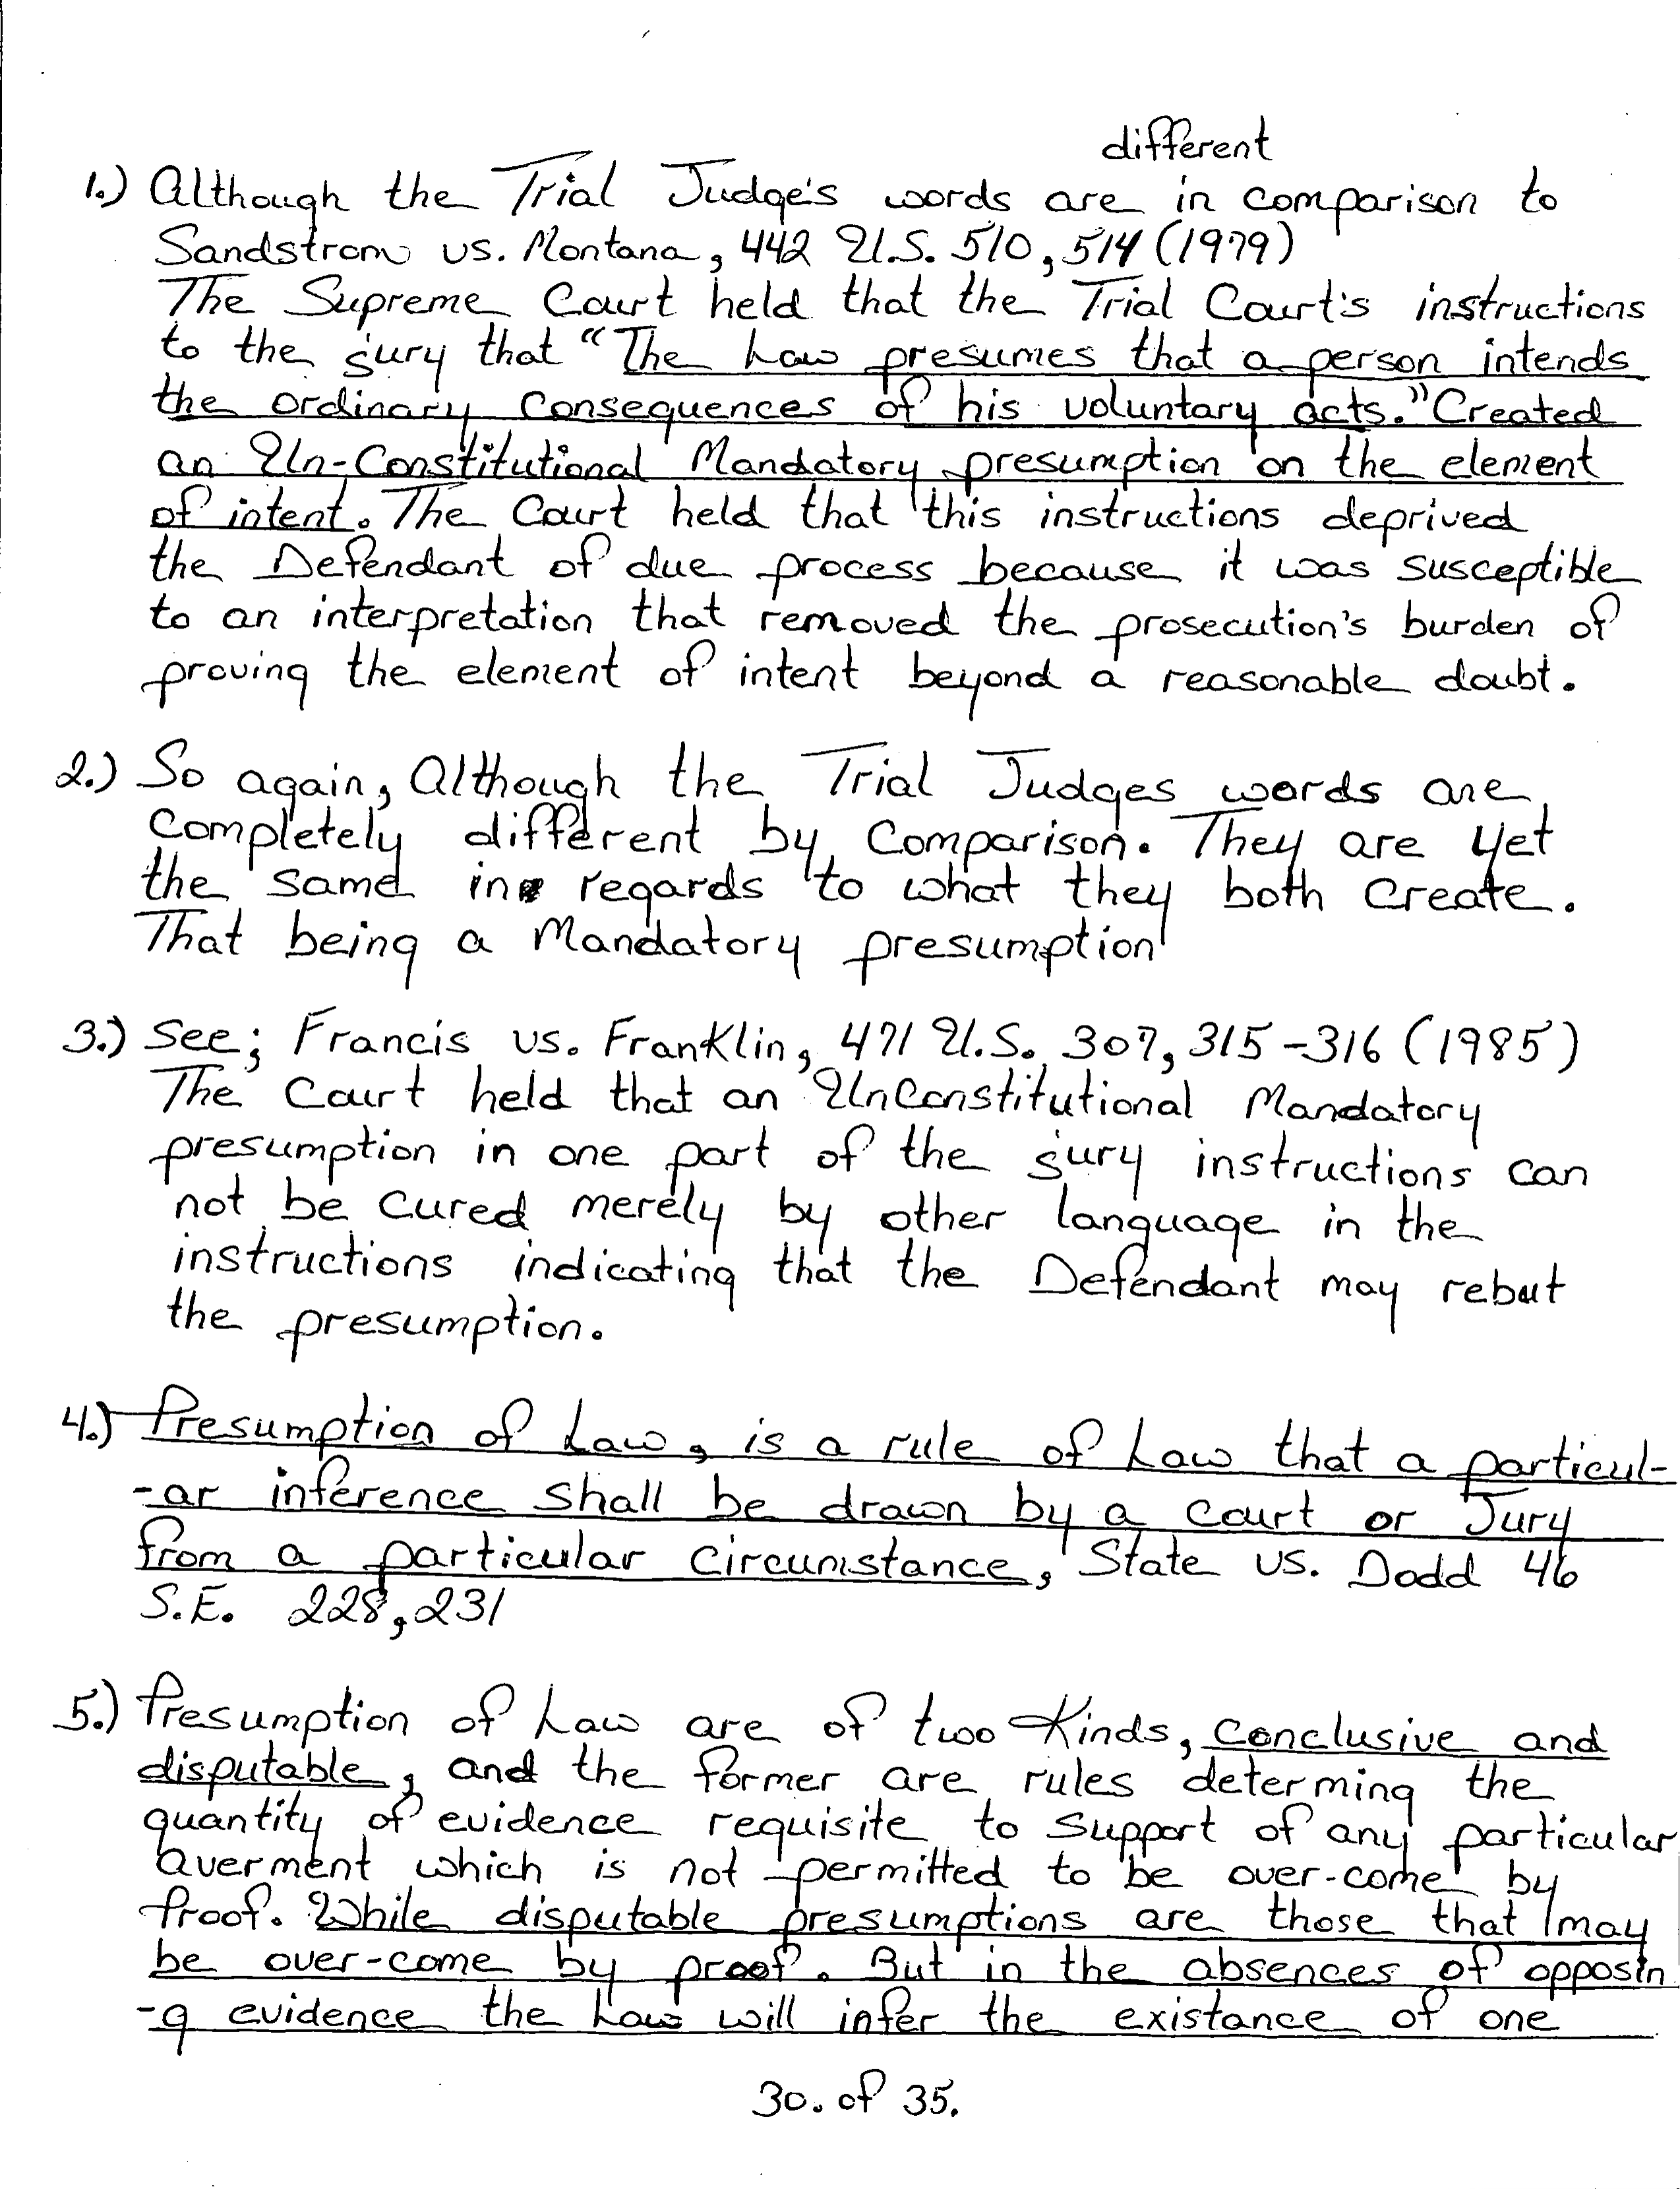 different
1.) Although the Trial Judge's words are in comparison to
Sandstrom vs. Montana, 442 U.S. 510, 514 (1979)
The Supreme Court held that the Trial Court's instructions
to the jury that "The Law presumes that a person intends
the ordinary Consequences of his voluntary acts." Created
an Un-Constitutional Mandatory presumption on the element
of intent. The Court held that this instructions deprived
the Defendant of due process because it was susceptible
to an interpretation that removed the prosecution's burden of
proving the element of intent beyond a reasonable doubt.
2.) So again, Although the Trial Judges words are
Completely different by Comparison. They are yet
the same in regards to what they both Create.
That being a Mandatory presumption
3.) See; Francis vs. Franklin, 471 U.S. 307, 315-316 (1985)
The Court held that an UnConstitutional Mandatory
presumption in one part of the jury instructions can
not be Cured merely by other language in the
instructions indicating that the Defendant may rebut
the presumption.
4.) Presumption of Law, is a rule of Law that a particul-
-ar inference shall be drawn by a Court or Jury
from a particular Circumstance, State vs. Dodd 46
S.E. 228, 231
5.) Presumption of Law are of two Kinds, Conclusive and
disputable, and the former are rules determing the
quantity of evidence requisite to support of any particular
averment which is not permitted to be over-come by
Proof. While disputable presumptions are those that may
be over-come by proof. But in the absences of opposin
-g evidence the Law will infer the existance of one
30. of 35.